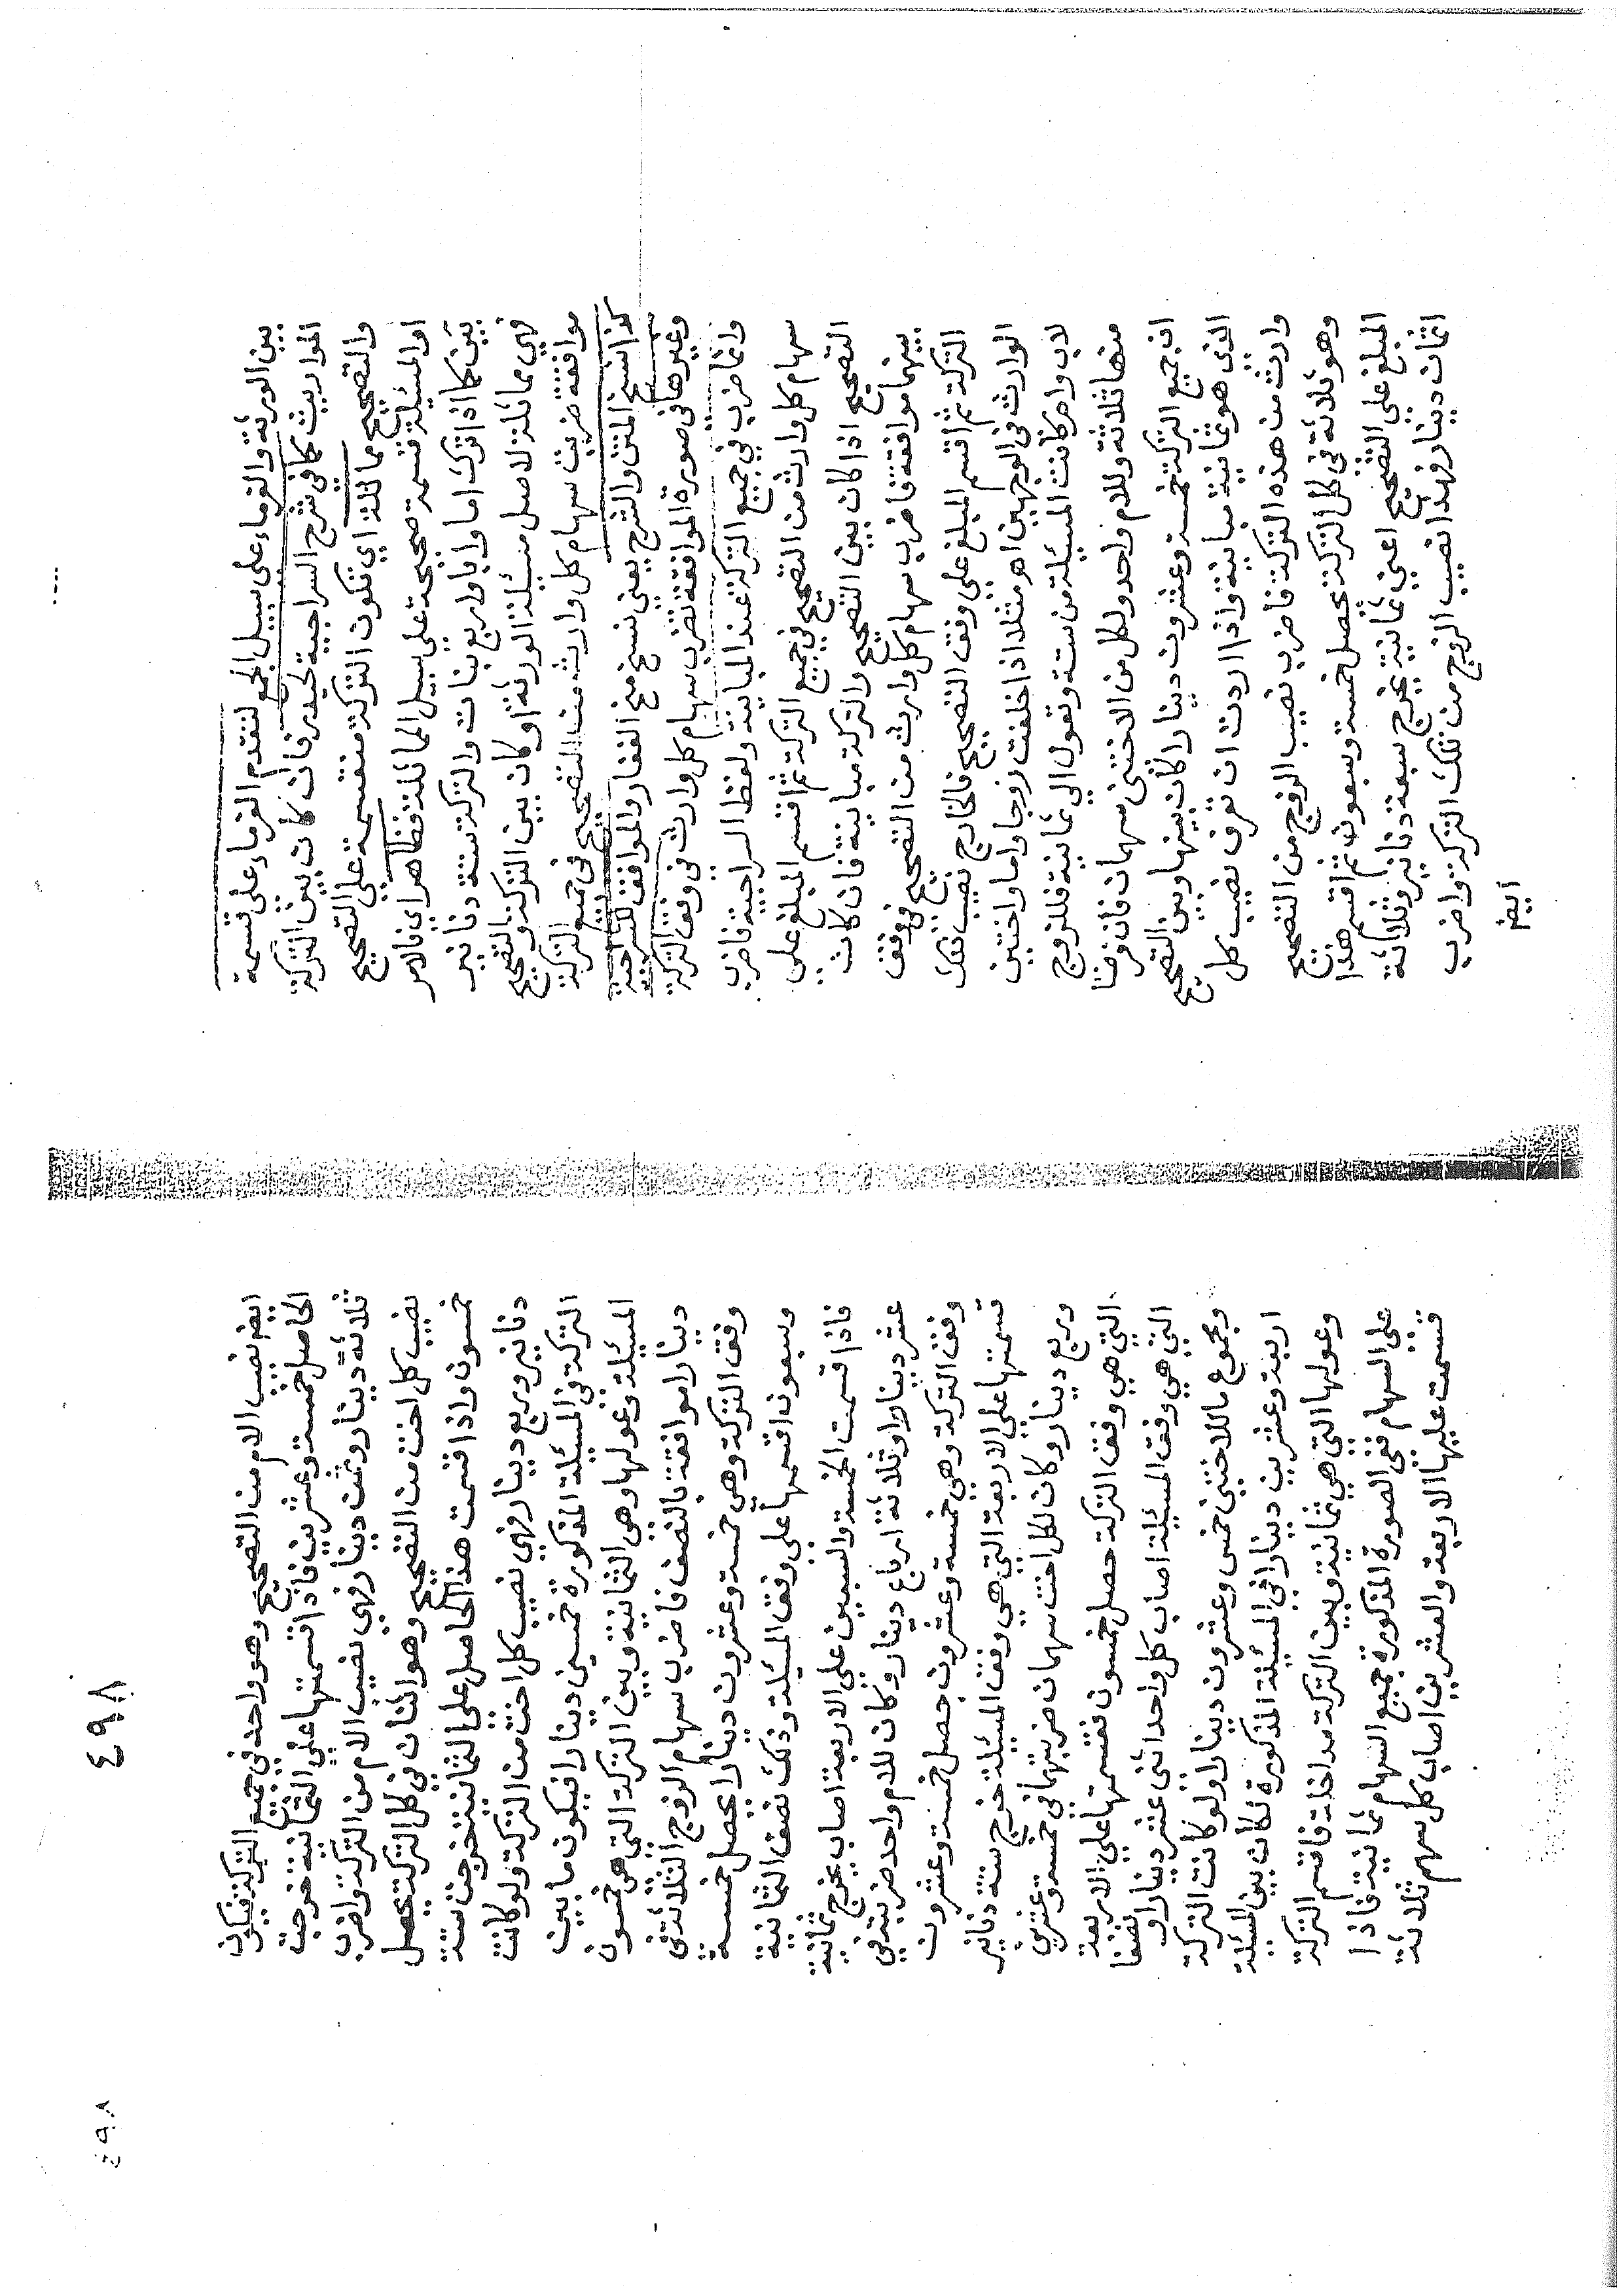 بين الورثة والغرماء على سبيل الجمع لتقدم الغرماء على قسمة
المواريث كما في شرح السراجية لحيدر فان كان بين التركة
والتصحيح مماثلة اي تكون التركة منقسمة على التصحيح
او المسئلة قسمة صحيحة على سبيل المماثلة فظاهر اي فالامر
بين كما اذا ترك اما وابا واربع بنات والتركة ستة دنانير
فهي مماثلة لاصل مسئلة الورثة او كان بين التركة والتصحيح
موافقة ضربت سهام كل وارث من التصحيح في جميع التركة
كذا نسخ المتن والشرح يعني نسخ منح الغفار والموافق للسراجية
وغيرها في صورة الموافقة تضرب سهام كل وارث في وفق التركة
وانما ضرب في جميع التركة عند المباينة ولفظ السراجية فاضرب
سهام كل وارث من التصحيح في جميع التركة ثم اقسم المبلغ على
التصحيح اذا كان بين التصحيح والتركة مباينة فان كان
بينهما موافقة فاضرب سهام كل وارث من التصحيح في وفق
التركة ثم اقسم المبلغ على وفق التصحيح فالخارج نصيب ذلك
الوارث في الوجهين اهـ مثلا اذا خلفت زوجا واما واختين
لاب وام كانت المسئلة من ستة وتعول الى ثمانية فللزوج
منها ثلاثة وللام واحد ولكل من الاختين سهمان فان فرضنا
ان جميع التركة خمسة وعشرون دينارا كان بينها وبين التصحيح
الذي هو ثمانية مباينة واذا اردت ان تعرف نصيب كل
وارث من هذه التركة فاضرب نصيب الزوج من التصحيح
وهو ثلاثة في كل التركة تحصل خمسة وسبعون ثم اقسم هذا
المبلغ على التصحيح اعني ثمانية يخرج سبعة دنانير وثلاثة
اثمان دينار فهذا نصيب الزوج من تلك التركة واضرب
ايض
٤٩٨
ايض نصيب الام من التصحيح وهو واحد في جميع التركة فيكون
الحاصل خمسة وعشرين فاذا قسمتها على الثمانية خرجت
ثلاثة دينار وثمن دينار فهي نصيب الام من التركة واضرب
نصيب كل اخت من التصحيح وهو اثنان في كل التركة يحصل
خمسون واذا قسمت هذا الحاصل على الثمانية خرجت ستة
دنانير وربع دينار فهي نصيب كل اخت من التركة ولو كانت
التركة في المسئلة المذكورة خمسين دينارا فيكون ما بين
المسئلة وعولها وهي الثمانية وبين التركة التي هي خمسون
دينارا موافقة بالنصف فاضرب سهام الزوج الثلاثة في
وفق التركة وهي خمسة وعشرون دينارا يحصل خمسة
وسبعون اقسمها على وفق المسئلة وذلك نصف الثمانية
فاذا قسمت الخمسة والسبعين على الاربعة اصاب يخرج ثمانية
عشر دينارا وثلاثة ارباع دينار وكان للام واحد ضربته في
وفق التركة وهي خمسة وعشرون حصل خمسة وعشرون
قسمتها على الاربعة التي هي وفق المسئلة خرج ستة دنانير
وربع دينار وكان لكل اخت سهمان ضربتهما في خمسة وعشرين
التي هي وفق التركة حصل خمسون تقسمتها على الاربعة
التي هي وفق المسئلة اصاب كل واحد اثنى عشر دينارا ونصفا
ومجموع ما للاختين خمس وعشرون دينارا ولو كانت التركة
اربعة وعشرين دينارا في المسئلة المذكورة لكان بين المسئلة
وعولها التي هي ثمانية وبين التركة مداخلة فاقسم التركة
على السهام ففي الصورة المذكورة جميع السهام ثمانية فاذا
قسمت عليها الاربعة والعشرين اصاب كل سهم ثلاثة
٤٩٨